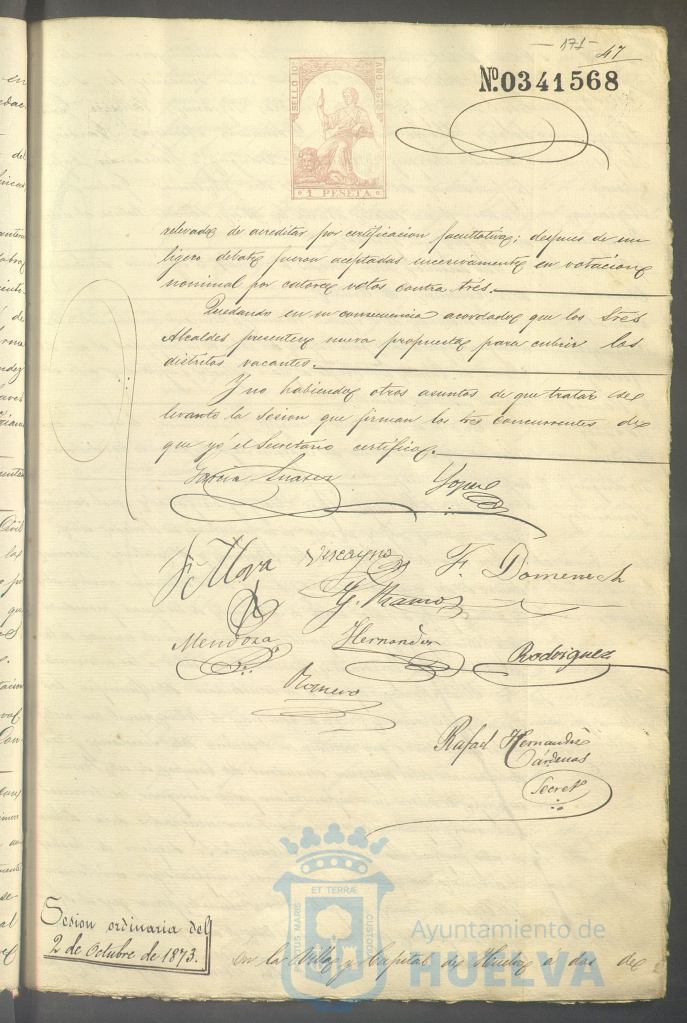 - 171 -
47
Nº.0341568
SELLO 10º
AÑO 1873
1 PESETA
relevados de acreditar por certificacion facultativa; despues de un
ligero debate fueron aceptadas sucesivamente en votacion
nominal por catorce votos contra tres.
Quedando en su consecuencia acordado que los Sres
Alcaldes presenten nueva propuesta para cubrir los
distritos vacantes.
Y no habiendo otros asuntos de que tratar se
levanto la sesion que firman los Sres concurrentes de
que yo el Secretario certifico.
Garcia Suarez
F. Mora Viscayno F. Domenech
G. Ramos
Mendoza Hernandez Rodriguez
Romero
Rafael Hernandez
Cárdenas
Secretº
Sesion ordinaria del
2 de Octubre de 1873.
en la Villa y Capital de Huelva a dos de
ET TERRÆ
PORTUS MARIS
CUSTODIA
Ayuntamiento de
HUELVA